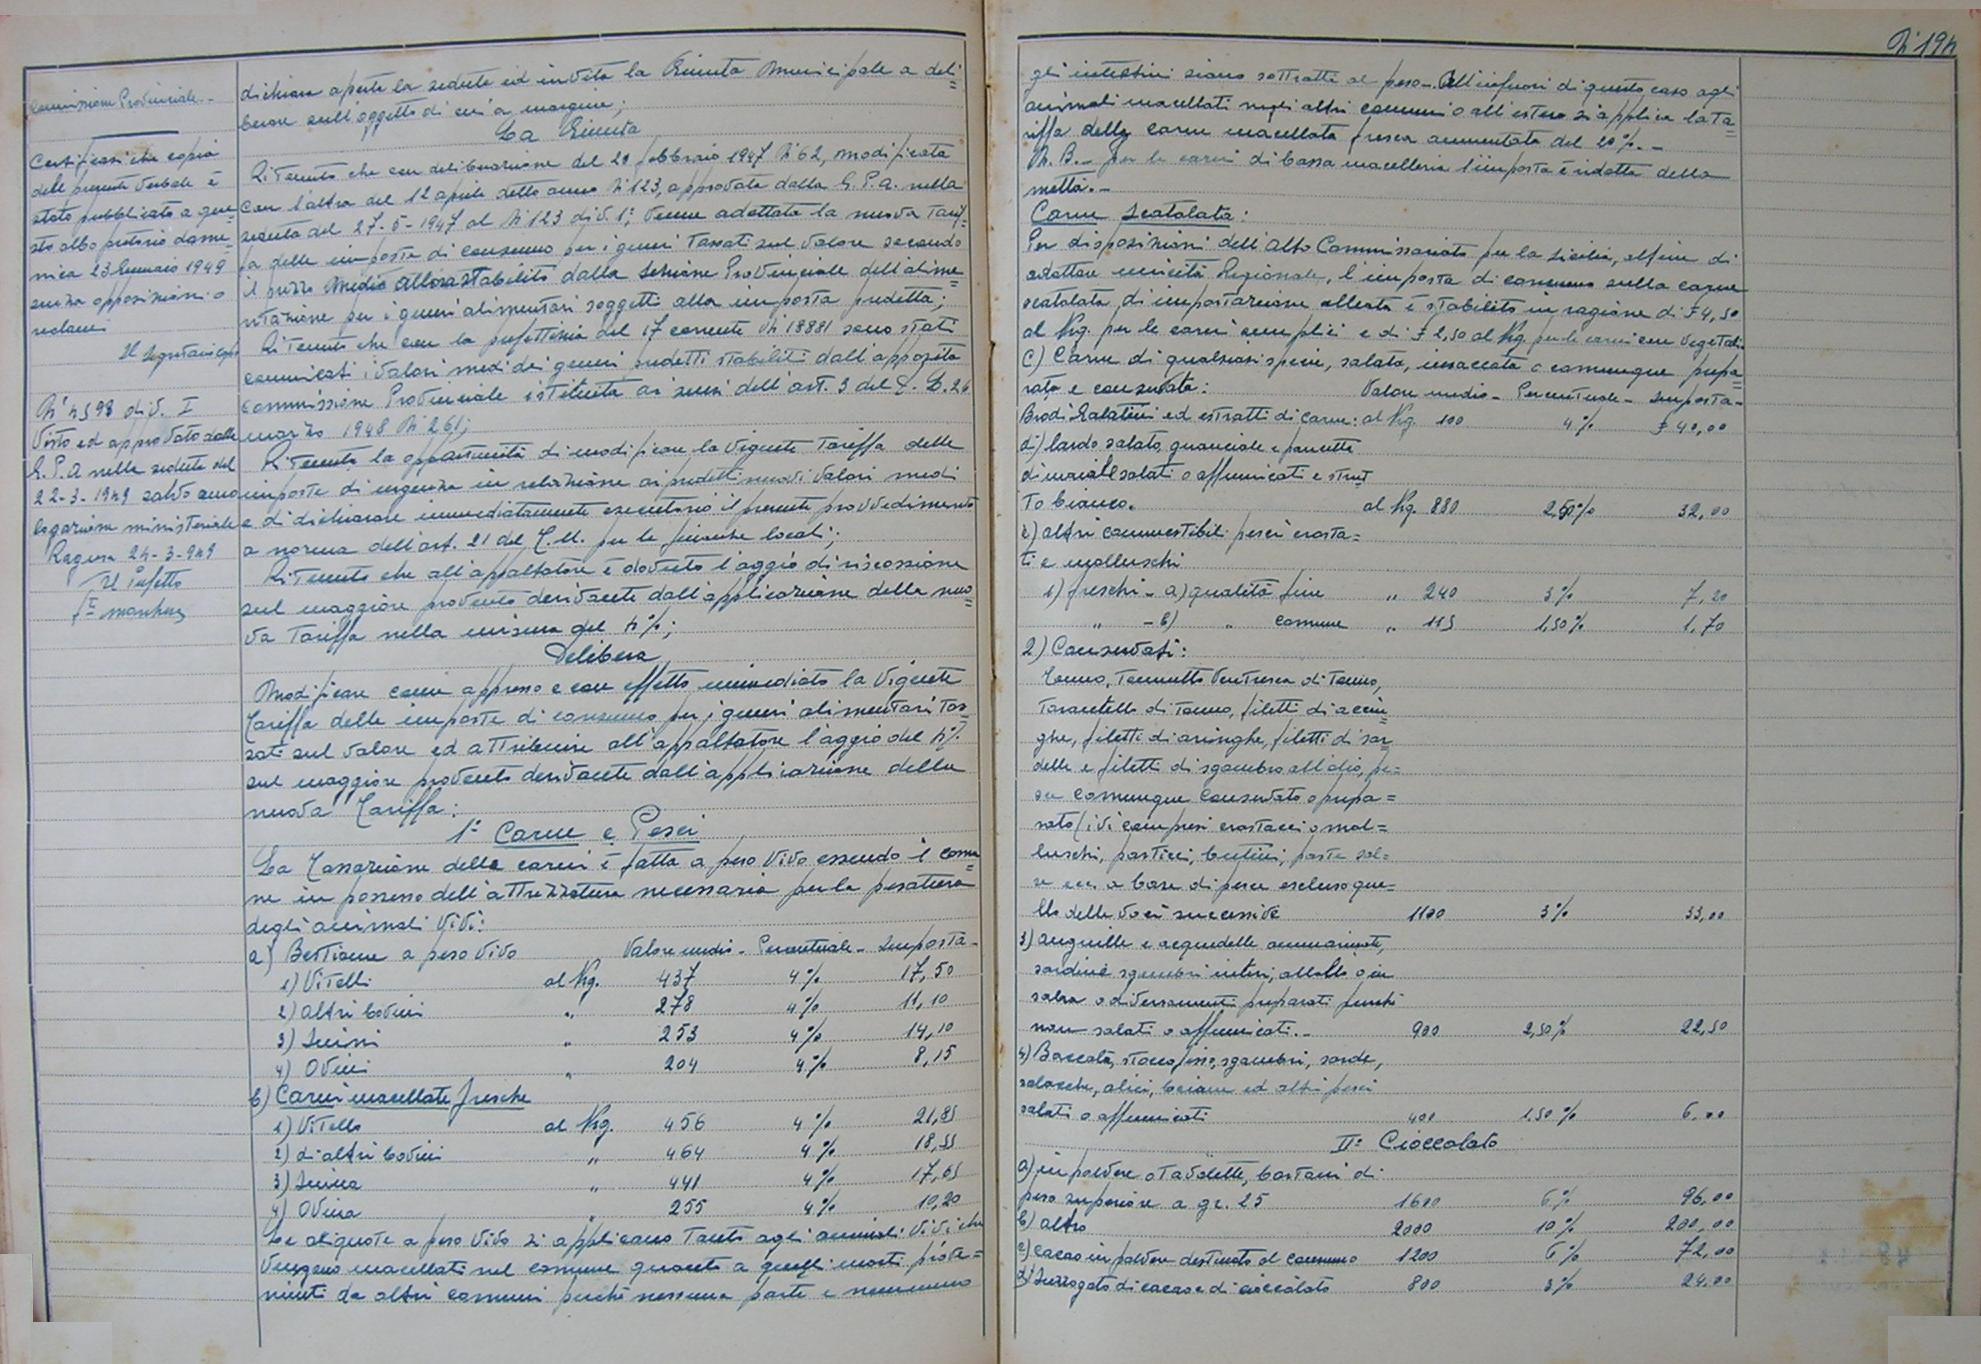 N° 194
Commissione Provinciale.-
Certificasi che copia
del presente verbale è
stato pubblicato a que=
sto albo pretorio dome=
nica 23 Gennaio 1949
senza opposizioni o
reclami
Il Segretario Capo
N° 4598 div. I
Visto ed approvato dalla
G.P.A nella seduta del
22-3-1949 salvo omo
logazione ministeriale
Ragusa 24-3-949
Il Prefetto
dichiara aperta la seduta ed invita la Giunta Municipale a deli=
berare sull'oggetto di cui a margine;
La Giunta
Ritenuto che con deliberazione del 21 febbraio 1947 N° 62, modificata
con l'altra del 12 aprile detto anno N° 123, approvata dalla G.P.A. nella
seduta del 27-5-1947 al N° 123 div. 1ª venne adottata la nuova tarif=
fa delle imposte di consumo per i generi tassati sul valore secondo
il prezzo medio allora stabilito dalla Sezione Provinciale dell'alime=
ntazione per i generi alimentari soggetti alla imposta predetta;
Ritenuto che con la prefettizia del 17 corrente N° 18881 sono stati
comunicati i valori medi dei generi predetti stabiliti dall'apposita
commissione Provinciale istituita ai sensi dell'art. 3 del D. L. 26
marzo 1948 N° 261;
Ritenuta la opportunità di modificare la vigente tariffa delle
imposte di urgenza in relazione ai predetti nuovi valori medi
e di dichiarare immediatamente esecutorio il presente provvedimento
a norma dell'art. 21 del T.U. per le finanze locali;
Ritenuto che all'appaltatore è dovuto l'aggio di riscossione
sul maggiore provento derivante dall'applicazione della nuo=
va tariffa nella misura del 4%;
Delibera
Modificare come appresso e con effetto immediato la vigente
Tariffa delle imposte di consumo per i generi alimentari tas=
sati sul valore ed attribuire all'appaltatore l'aggio del 4%
sul maggiore provento derivante dall'applicazione della
nuova Tariffa:
1° Carne e Pesci
La Tassazione delle carni è fatta a peso vivo essendo il comu=
ne in possesso dell'attrezzatura necessaria per la pesatura
degli animali vivi:
a) Bestiame a peso vivo Valore medio - Percentuale - Imposta -
1) Vitelli al Kg. 437 4% 17,50
2) altri bovini " 278 4% 11,10
3) Suini " 253 4% 14,10
4) Ovini " 204 4% 8,15
b) Carni macellate fresche
1) Vitello al Kg. 456 4% 21,85
2) di altri bovini " 464 4% 18,55
3) Suina " 441 4% 17,65
4) Ovina " 255 4% 10,20
Le aliquote a peso vivo si applicano tanto agli animali vivi che
vengono macellati nel comune quanto a quelli morti prove=
nienti da altri comuni perché nessuna parte e nemmeno
gli intestini siano sottratti al peso.- All'infuori di questo caso agli
animali macellati negli altri comuni o all'estero si applica la ta=
riffa della carne macellata fresca aumentata del 20%.-
N. B.- per le carni di bassa macelleria l'imposta è ridotta della
metà.-
Carne Scatolata:
Per disposizioni dell'Alto Commissariato per la Sicilia, al fine di
adottare unicità Regionale, l'imposta di consumo sulla carne
scatolata di importazione alleata è stabilita in ragione di £ 4,50
al Kg. per le carni semplici e di £ 2,50 al Kg. per le carni con vegetali.
C) Carne di qualsiasi specie, salata, insaccata o comunque prepa=
rata e conservata: Valore medio - Percentuale - Imposta -
Brodi Gelatini ed estratti di carne: al Kg. 100 4% £ 40,00
d) lardo salato, guanciale e pancetta
di maiale salati o affumicati e strut
to bianco. al Kg. 880 2,50% 32,00
e) altri commestibili: pesci crosta=
ti e molluschi
1) freschi - a) qualità fine " 240 3% 7,20
" - b) " comune " 115 1,50% 1,70
2) Conservati:
Tonno, Tonnetto Ventresca di Tonno,
Tarantello di Tonno, filetti di acciu=
ghe, filetti di aringhe, filetti di sar=
delle e filetti di sgombro all'olio, pe=
sce comunque conservato o prepa=
rato (ivi compresi crostacei o mol=
luschi, pasticci, budini, paste sal=
se ecc. a base di pesce escluso que=
llo delle voci successive 1100 3% 33,00
3) anguille e acquadelle ammarinate,
sardine sgombri interi, all'olio o in
salsa o diversamente preparati purché
non salati o affumicati.- 900 2,50% 22,50
4) Baccalà, stoccafisso, sgombri, sarde,
salacche, alici, boiane ed altri pesci
salati o affumicati 400 1,50% 6,00
II° Cioccolato
a) in polvere o tavolette, bastoni di
peso superiore a gr. 25 1600 6% 96,00
b) altro 2000 10% 200,00
c) cacao in polvere destinato al consumo 1200 6% 72,00
d) Surrogato di cacao e di cioccolato 800 3% 24,00